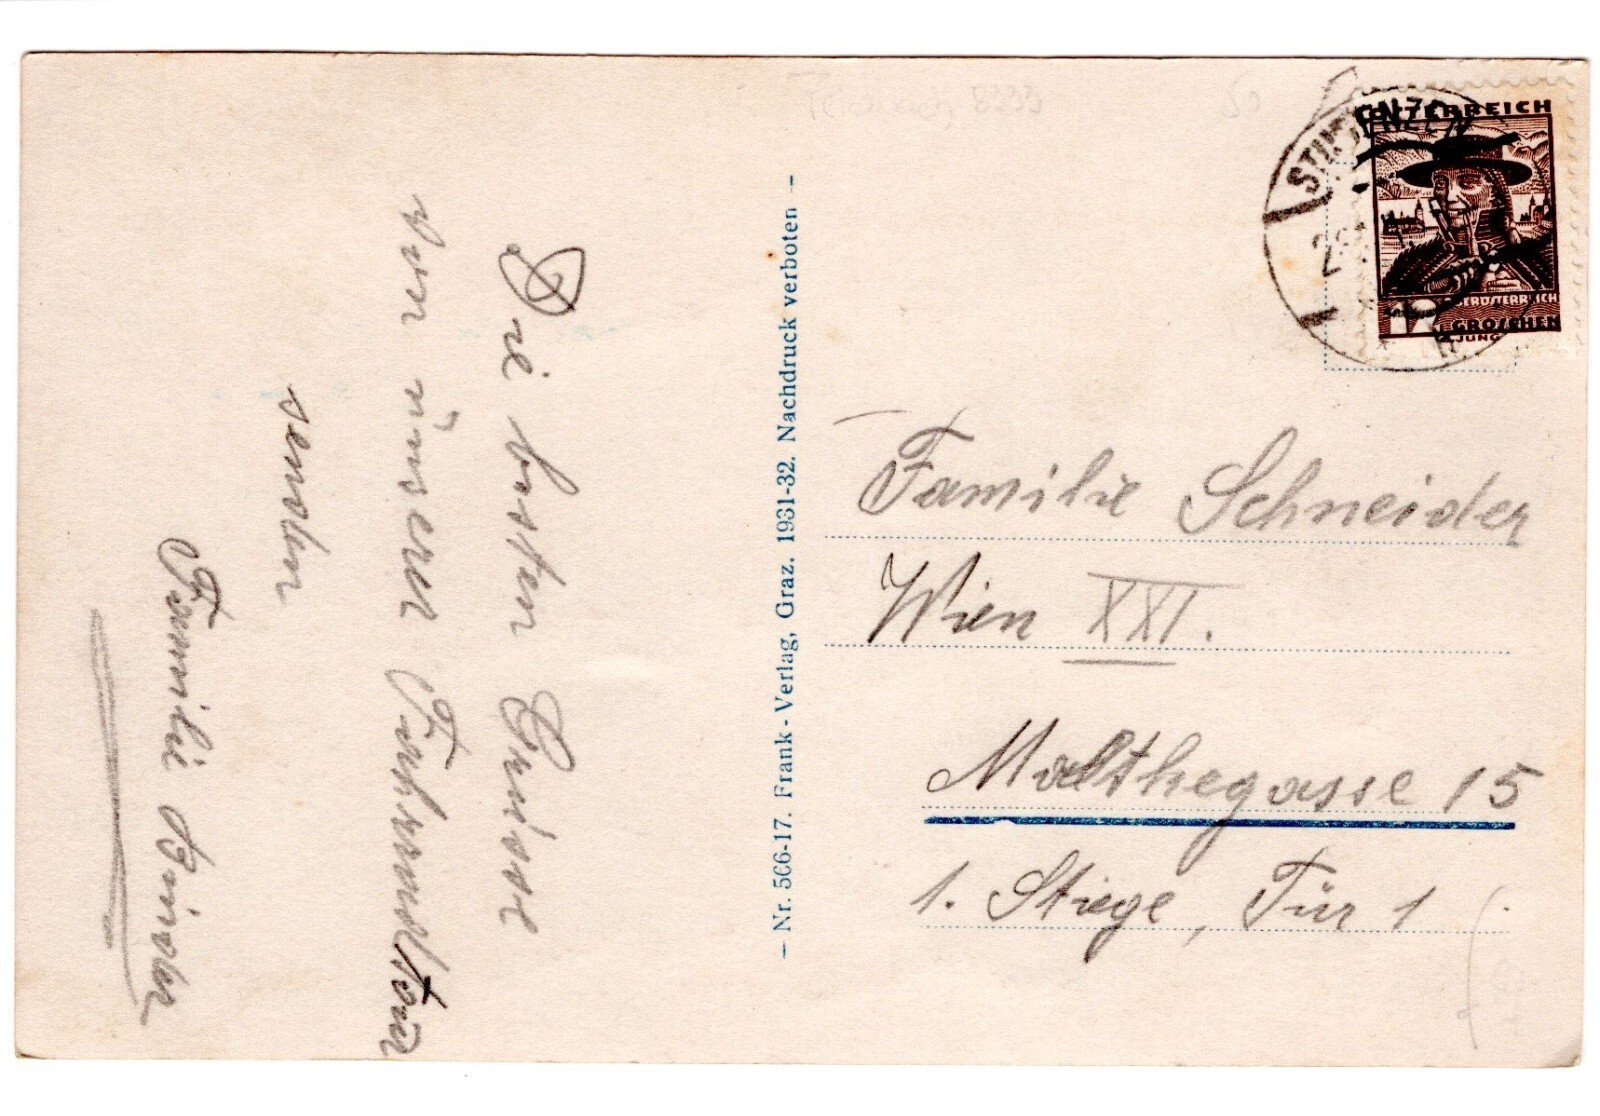 Die besten Grüsse
von unserer Fahrradtour
senden
Familie Binder
– Nr. 566-17. Frank-Verlag, Graz. 1931-32. Nachdruck verboten –
8333
50
STUDENZEN
ÖSTERREICH
OBERÖSTERREICH
GROSCHEN
JUNG
Familie Schneider
Wien XXI.
Molthegasse 15
1. Stiege, Tür 1